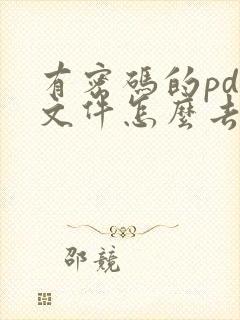 有密碼的pd
文件怎麼去
邵競